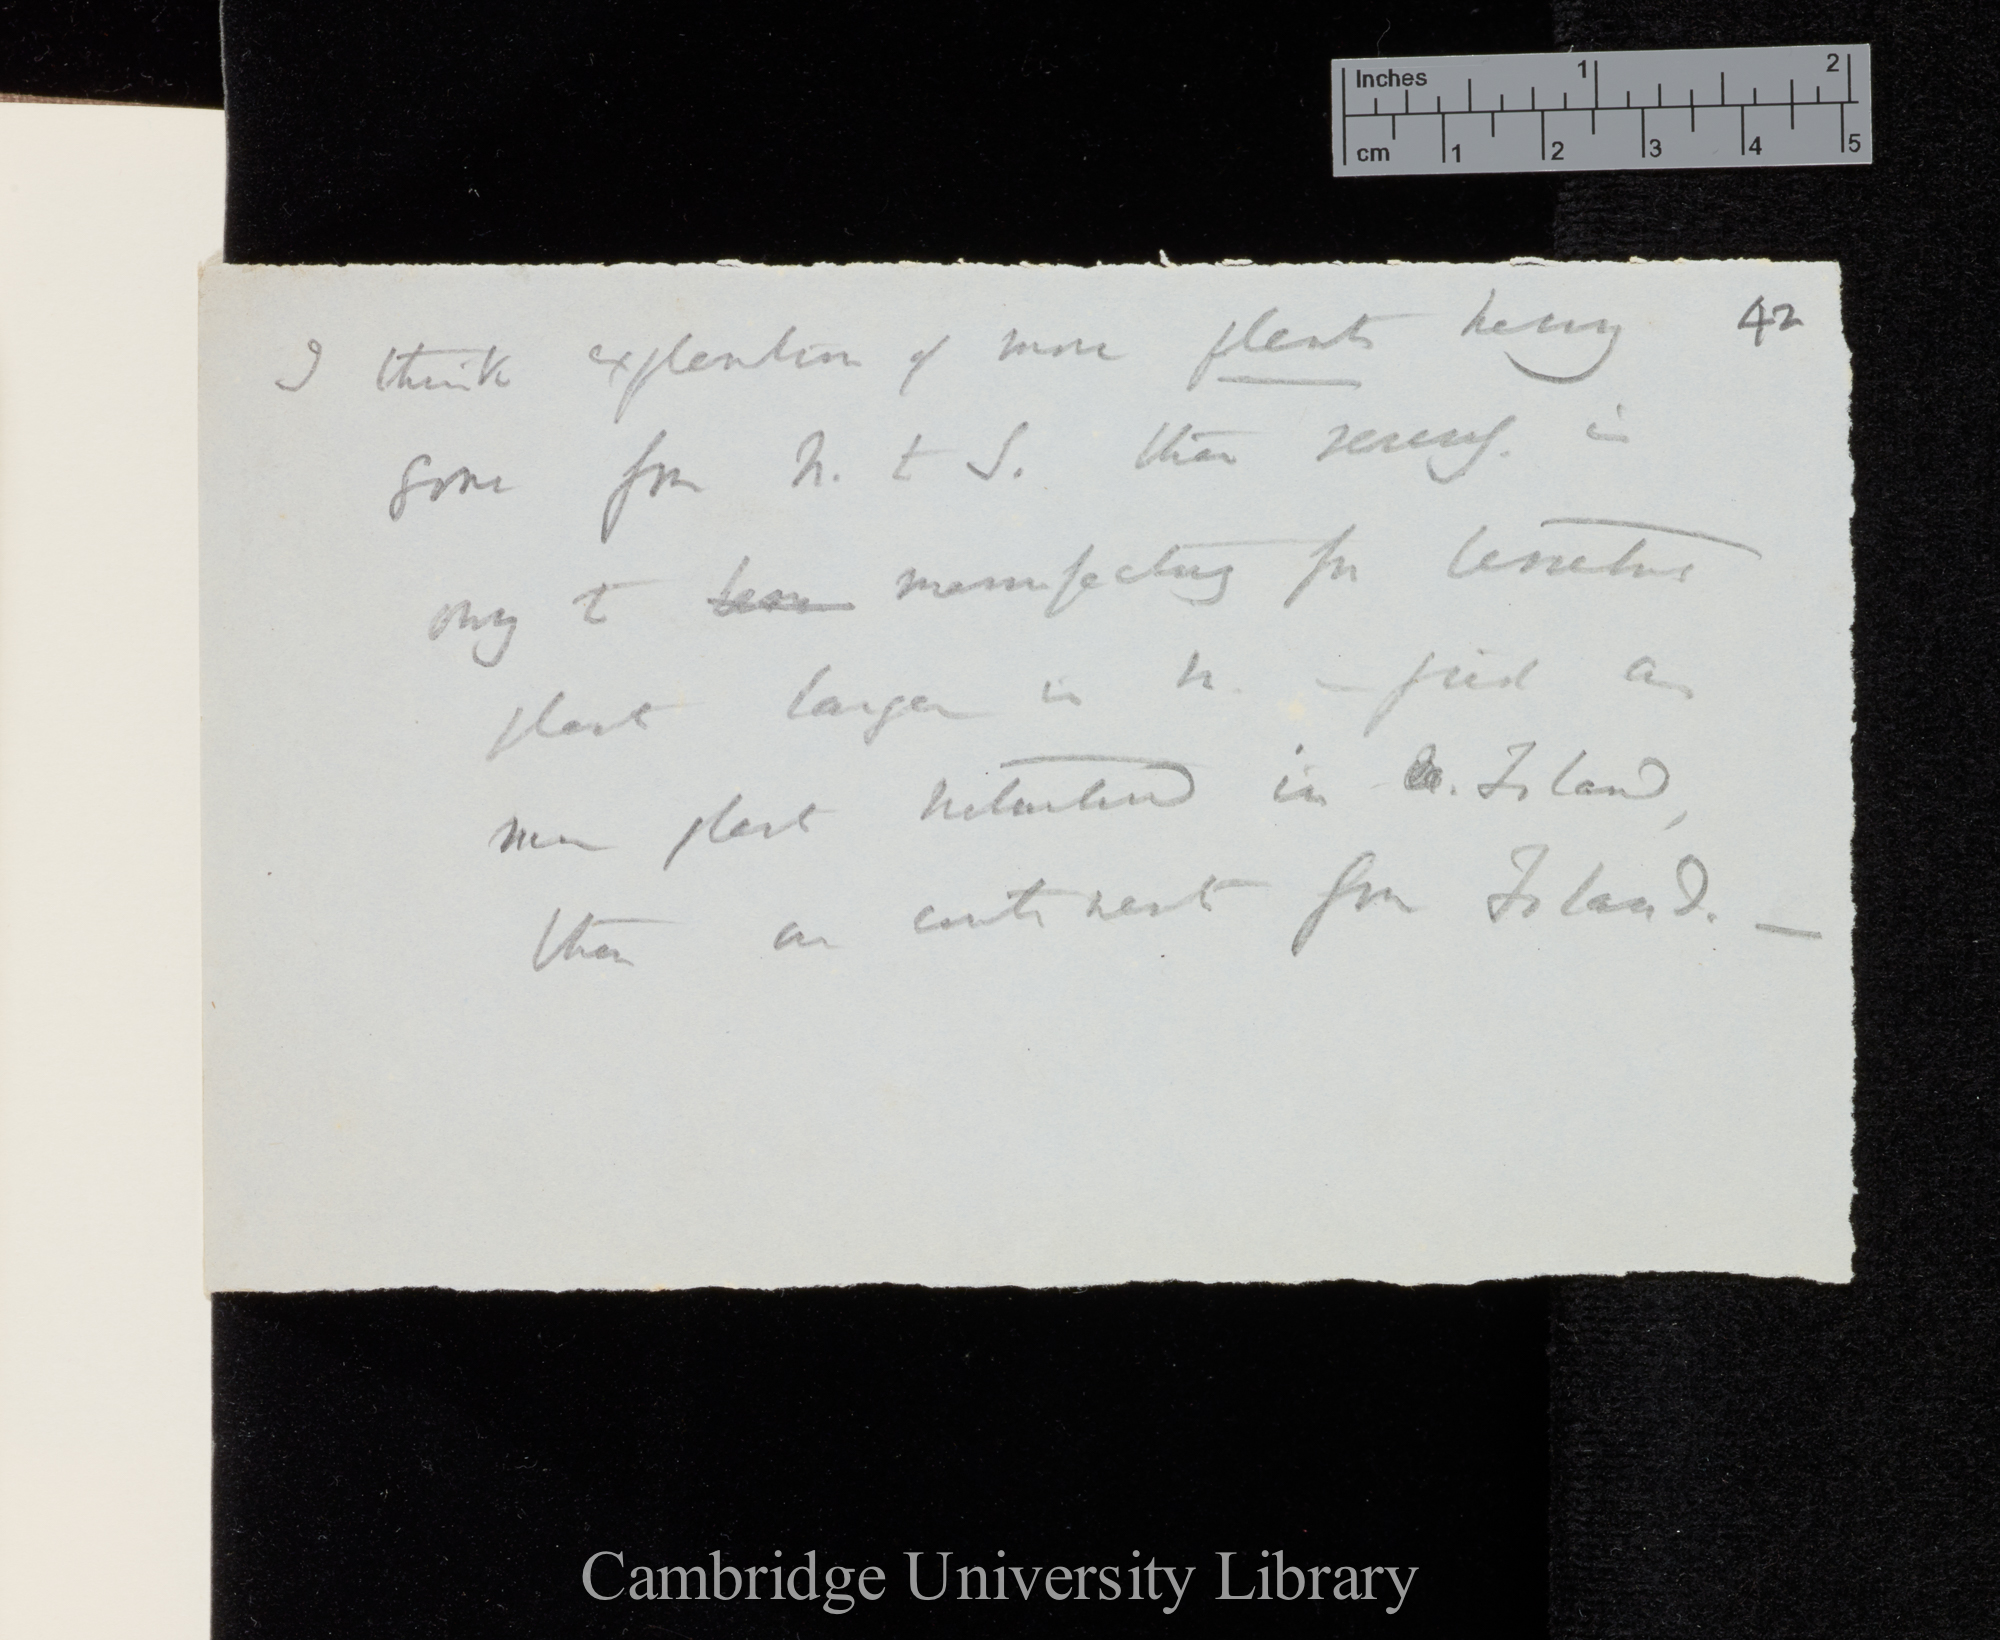 Inches 1 2
cm 1 2 3 4 5
42
I think explantion of more plants having
gone from N. to S. than revers. is
owing to manufacturing for
plant larger in N. – find as
more plant naturalised in Island,
than on continent from Island. —
Cambridge University Library